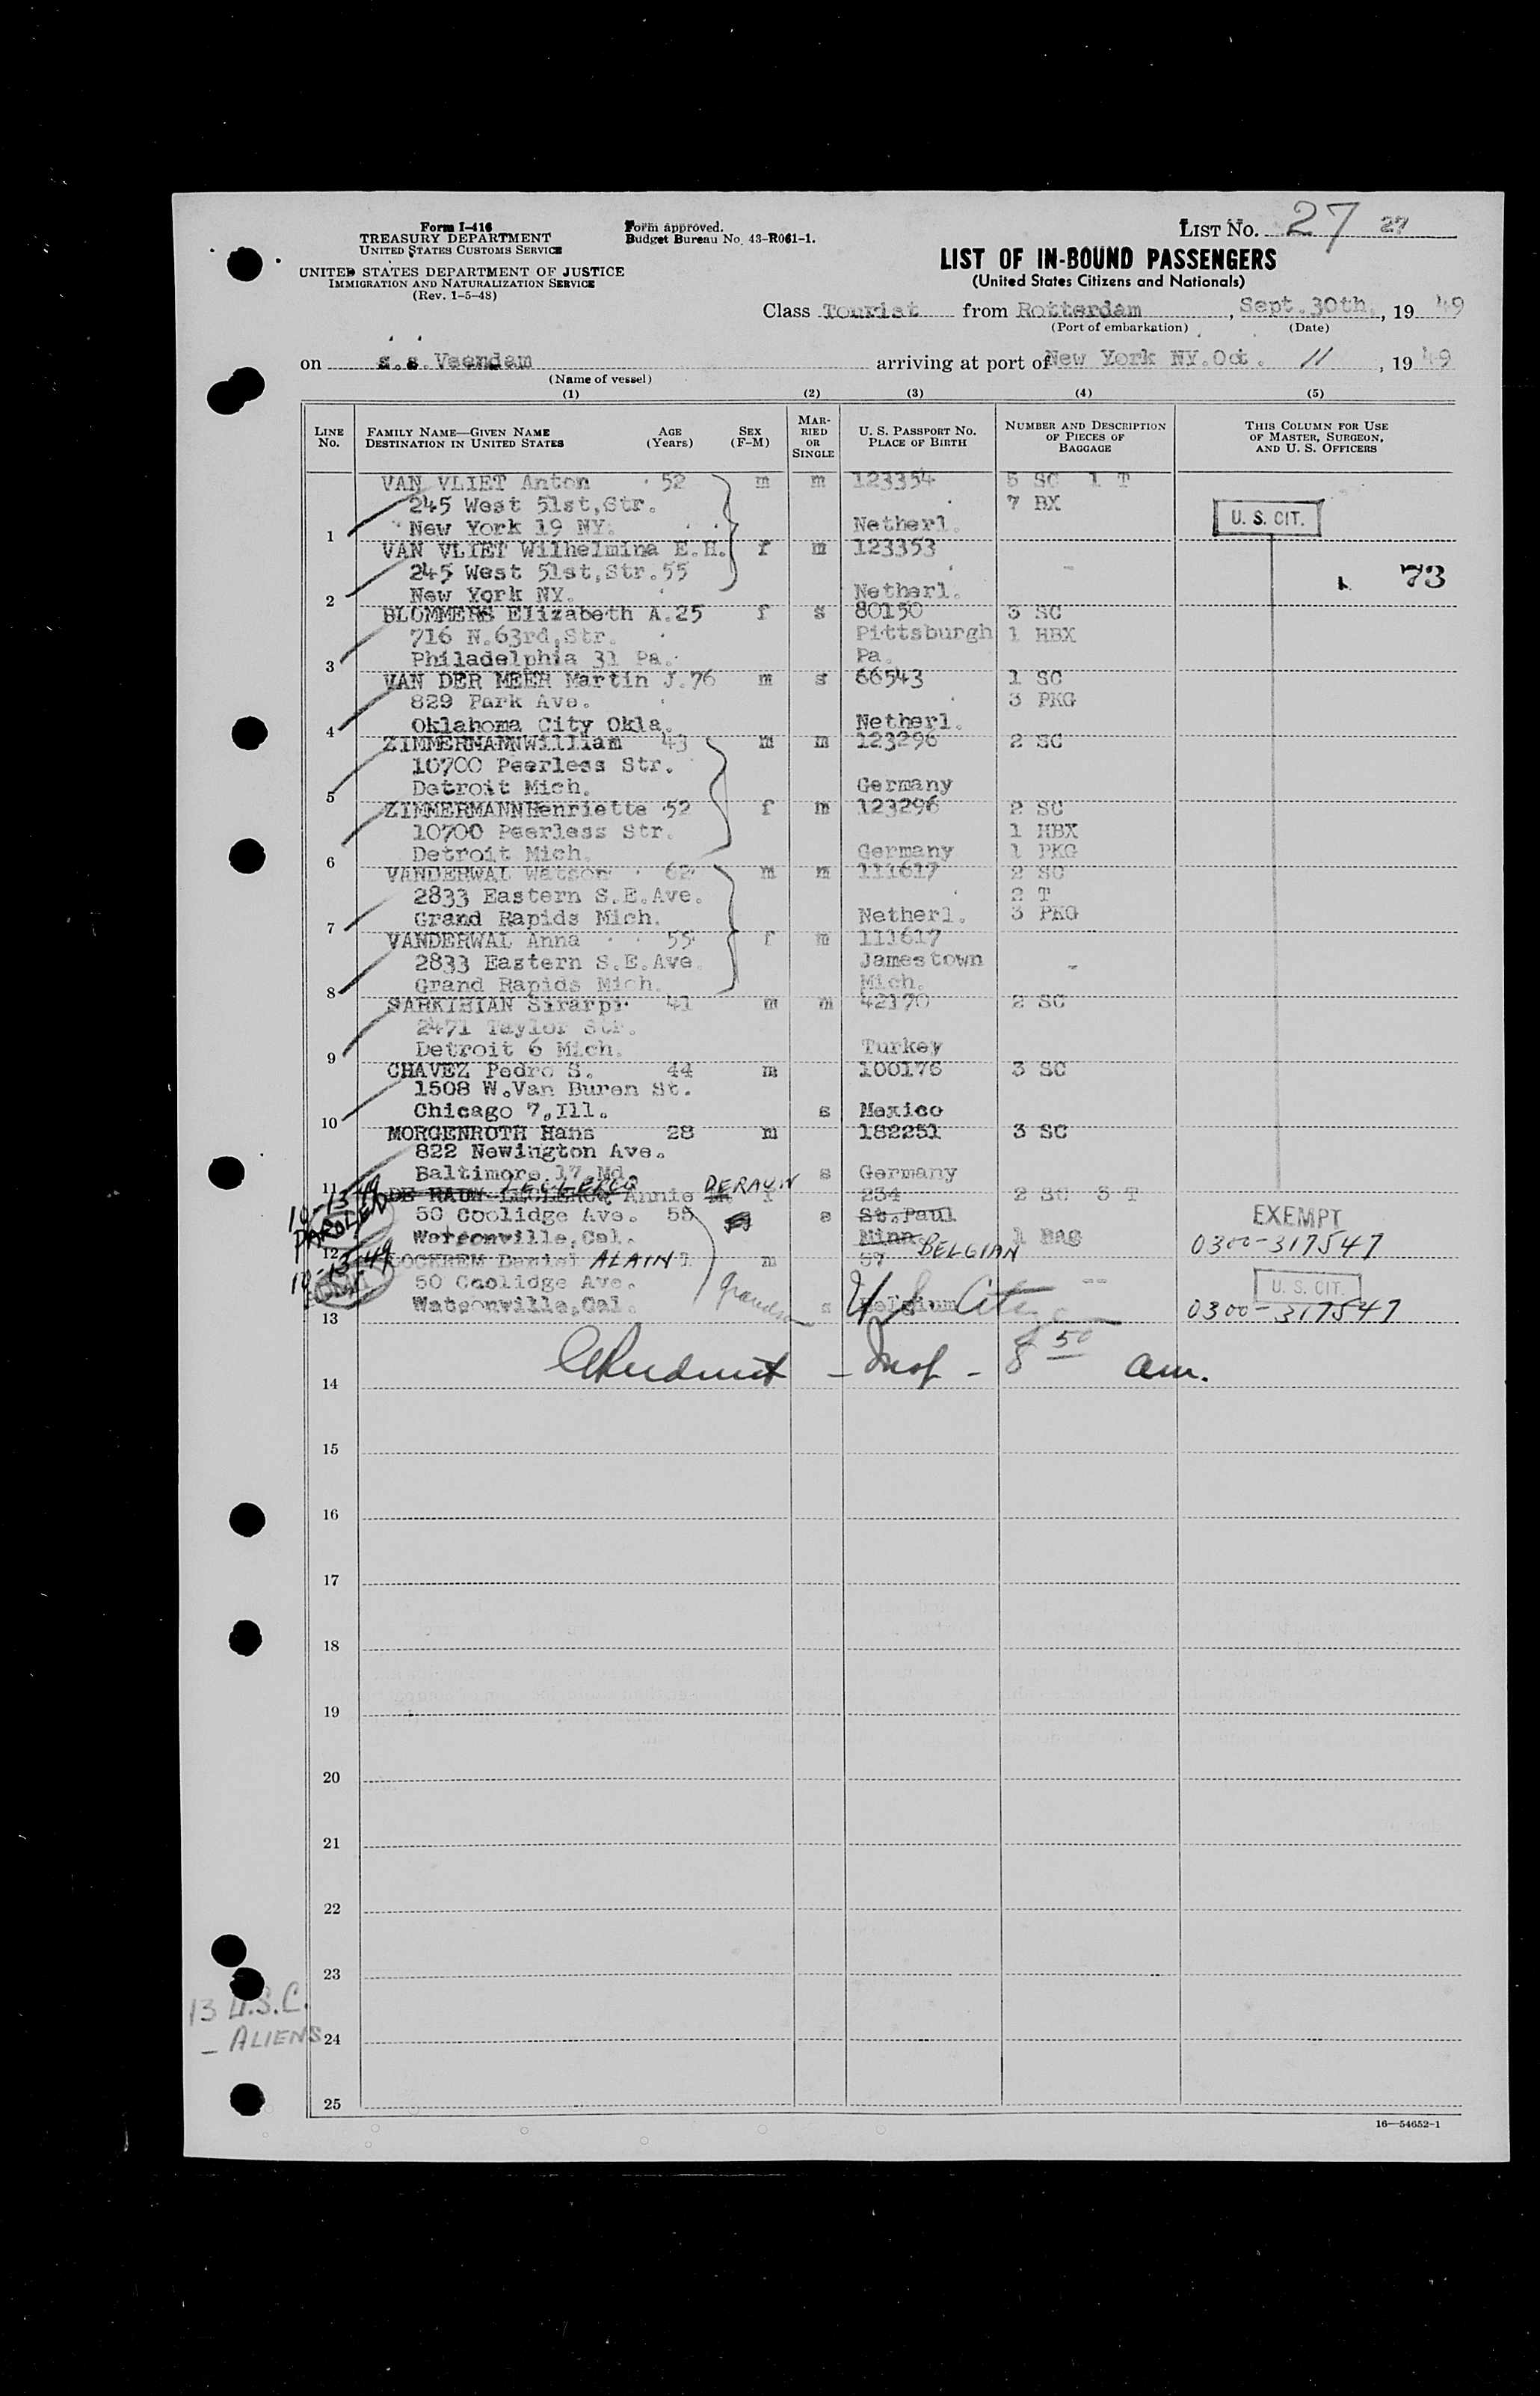 Form I-416
TREASURY DEPARTMENT
UNITED STATES CUSTOMS SERVICE
UNITED STATES DEPARTMENT OF JUSTICE
IMMIGRATION AND NATURALIZATION SERVICE
(Rev. 1-5-48)
Form approved.
Budget Bureau No. 43-R061-1.
LIST NO. 27 27
LIST OF IN-BOUND PASSENGERS
(United States Citizens and Nationals)
Class Tourist from Rotterdam, Sept.30th., 19 49
(Port of embarkation) (Date)
on s.s.Veendam arriving at port of New York NY.Oct. 11, 19 49
(Name of vessel)
(1) (2) (3) (4) (5)
LINE NO. FAMILY NAME—GIVEN NAME DESTINATION IN UNITED STATES AGE (Years) SEX (F-M) MARRIED OR SINGLE U. S. PASSPORT NO. PLACE OF BIRTH NUMBER AND DESCRIPTION OF PIECES OF BAGGAGE THIS COLUMN FOR USE OF MASTER, SURGEON, AND U. S. OFFICERS
VAN VLIET Anton 52 m m 123354 5 SC 1 T
245 West 51st,Str. 7 BX
1 New York 19 NY. Netherl. U. S. CIT.
VAN VLIET Wilhelmina E.H. f m 123353
245 West 51st,Str.55 73
2 New York NY. Netherl.
BLOMMERS Elizabeth A.25 f s 80150 3 SC
716 N.63rd,Str. Pittsburgh 1 HBX
3 Philadelphia 31 Pa. Pa.
VAN DER MEER Martin J.76 m s 66543 1 SC
829 Park Ave. 3 PKG
4 Oklahoma City Okla. Netherl.
ZIMMERMANN William 43 m m 123296 2 SC
10700 Peerless Str.
5 Detroit Mich. Germany
ZIMMERMANN Henriette 52 f m 123296 2 SC
10700 Peerless Str. 1 HBX
6 Detroit Mich. Germany 1 PKG
VANDERWAL Watson 62 m m 111617 2 SC
2833 Eastern S.E.Ave. 2 T
7 Grand Rapids Mich. Netherl. 3 PKG
VANDERWAL Anna 55 f m 111617
2833 Eastern S.E.Ave. Jamestown
8 Grand Rapids Mich. Mich.
Sirarpi 41 m m 42170 2 SC
2471 Taylor Str.
9 Detroit 6 Mich. Turkey
CHAVEZ Pedro S. 44 m 100176 3 SC
1508 W.Van Buren St.
10 Chicago 7,Ill. s Mexico
MORGENROTH Hans 28 m 182251 3 SC
822 Newington Ave.
11 Baltimore 17 Md. s Germany
10-13-49 DE RAUW LECLERCQ Annie DERAUW f 234 2 SC 5 T
PAROLED 50 Coolidge Ave. 55 s St.Paul EXEMPT
12 Watsonville,Cal. Minn. BELGIAN 1 BAG 0300-317547
10-13-49 Daniel ALAIN m 57
50 Coolidge Ave. -- U. S. CIT.
13 Watsonville,Cal. Grandson s Belgium U S Citizen 0300-317547
14 - Insp - 8 50 am.
15
16
17
18
19
20
21
22
23
13 U.S.C.
— ALIENS 24
25
16—54652-1